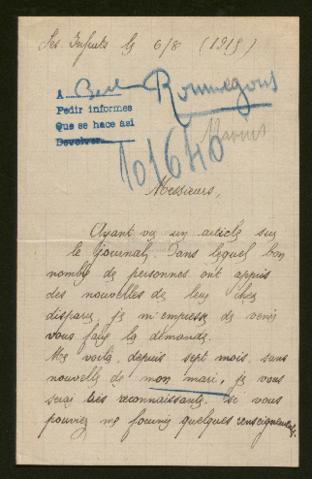 Ses Infuts le 6/8 (1915)
A Berl Roumegous
Pedir informes
Que se hace así
Devolver
Marius
101640
Messieurs,
Ayant vu un article sur
le Journal, Dans lequel bon
nombre de personnes ont appris
des nouvelles de leur cher
disparu, je m'empresse de venir
vous faire la demande.
Me voila, depuis sept mois, sans
nouvelle de mon mari, je vous
serai très reconnaissante si vous
pouviez me fournir quelques renseignements.